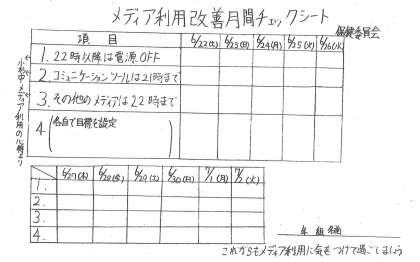 メディア利用改善月間チェックシート
保健委員会
項目 6/22(土) 6/23(日) 6/24(月) 6/25(火) 6/26(水)
1. 22時以降は電源OFF
2. コミュニケーションツールは21時まで
3. その他のメディアは22時まで
4 (各自で目標を設定)
メディア利用の心得より
6/27(木) 6/28(金) 6/29(土) 6/30(日) 7/1(月) 7/2(火)
1.
2.
3.
4.
年 組 名前
これからもメディア利用に気をつけて過ごしましょう